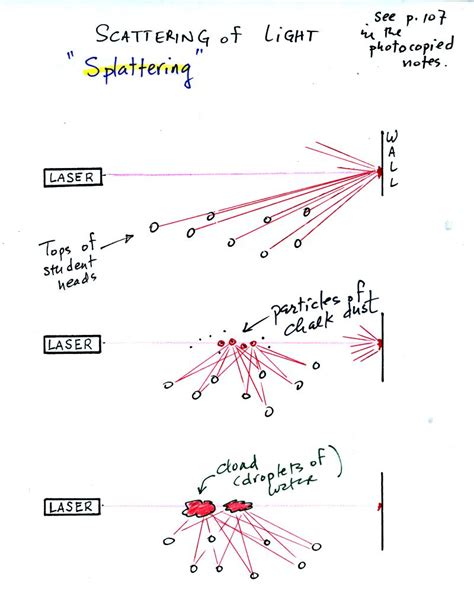 SCATTERING of LIGHT
"Splattering"
see p. 107
in the
photocopied
notes.
WALL
LASER
Tops of
student
heads
particles of
chalk dust
LASER
cloud
(droplets of
water)
LASER